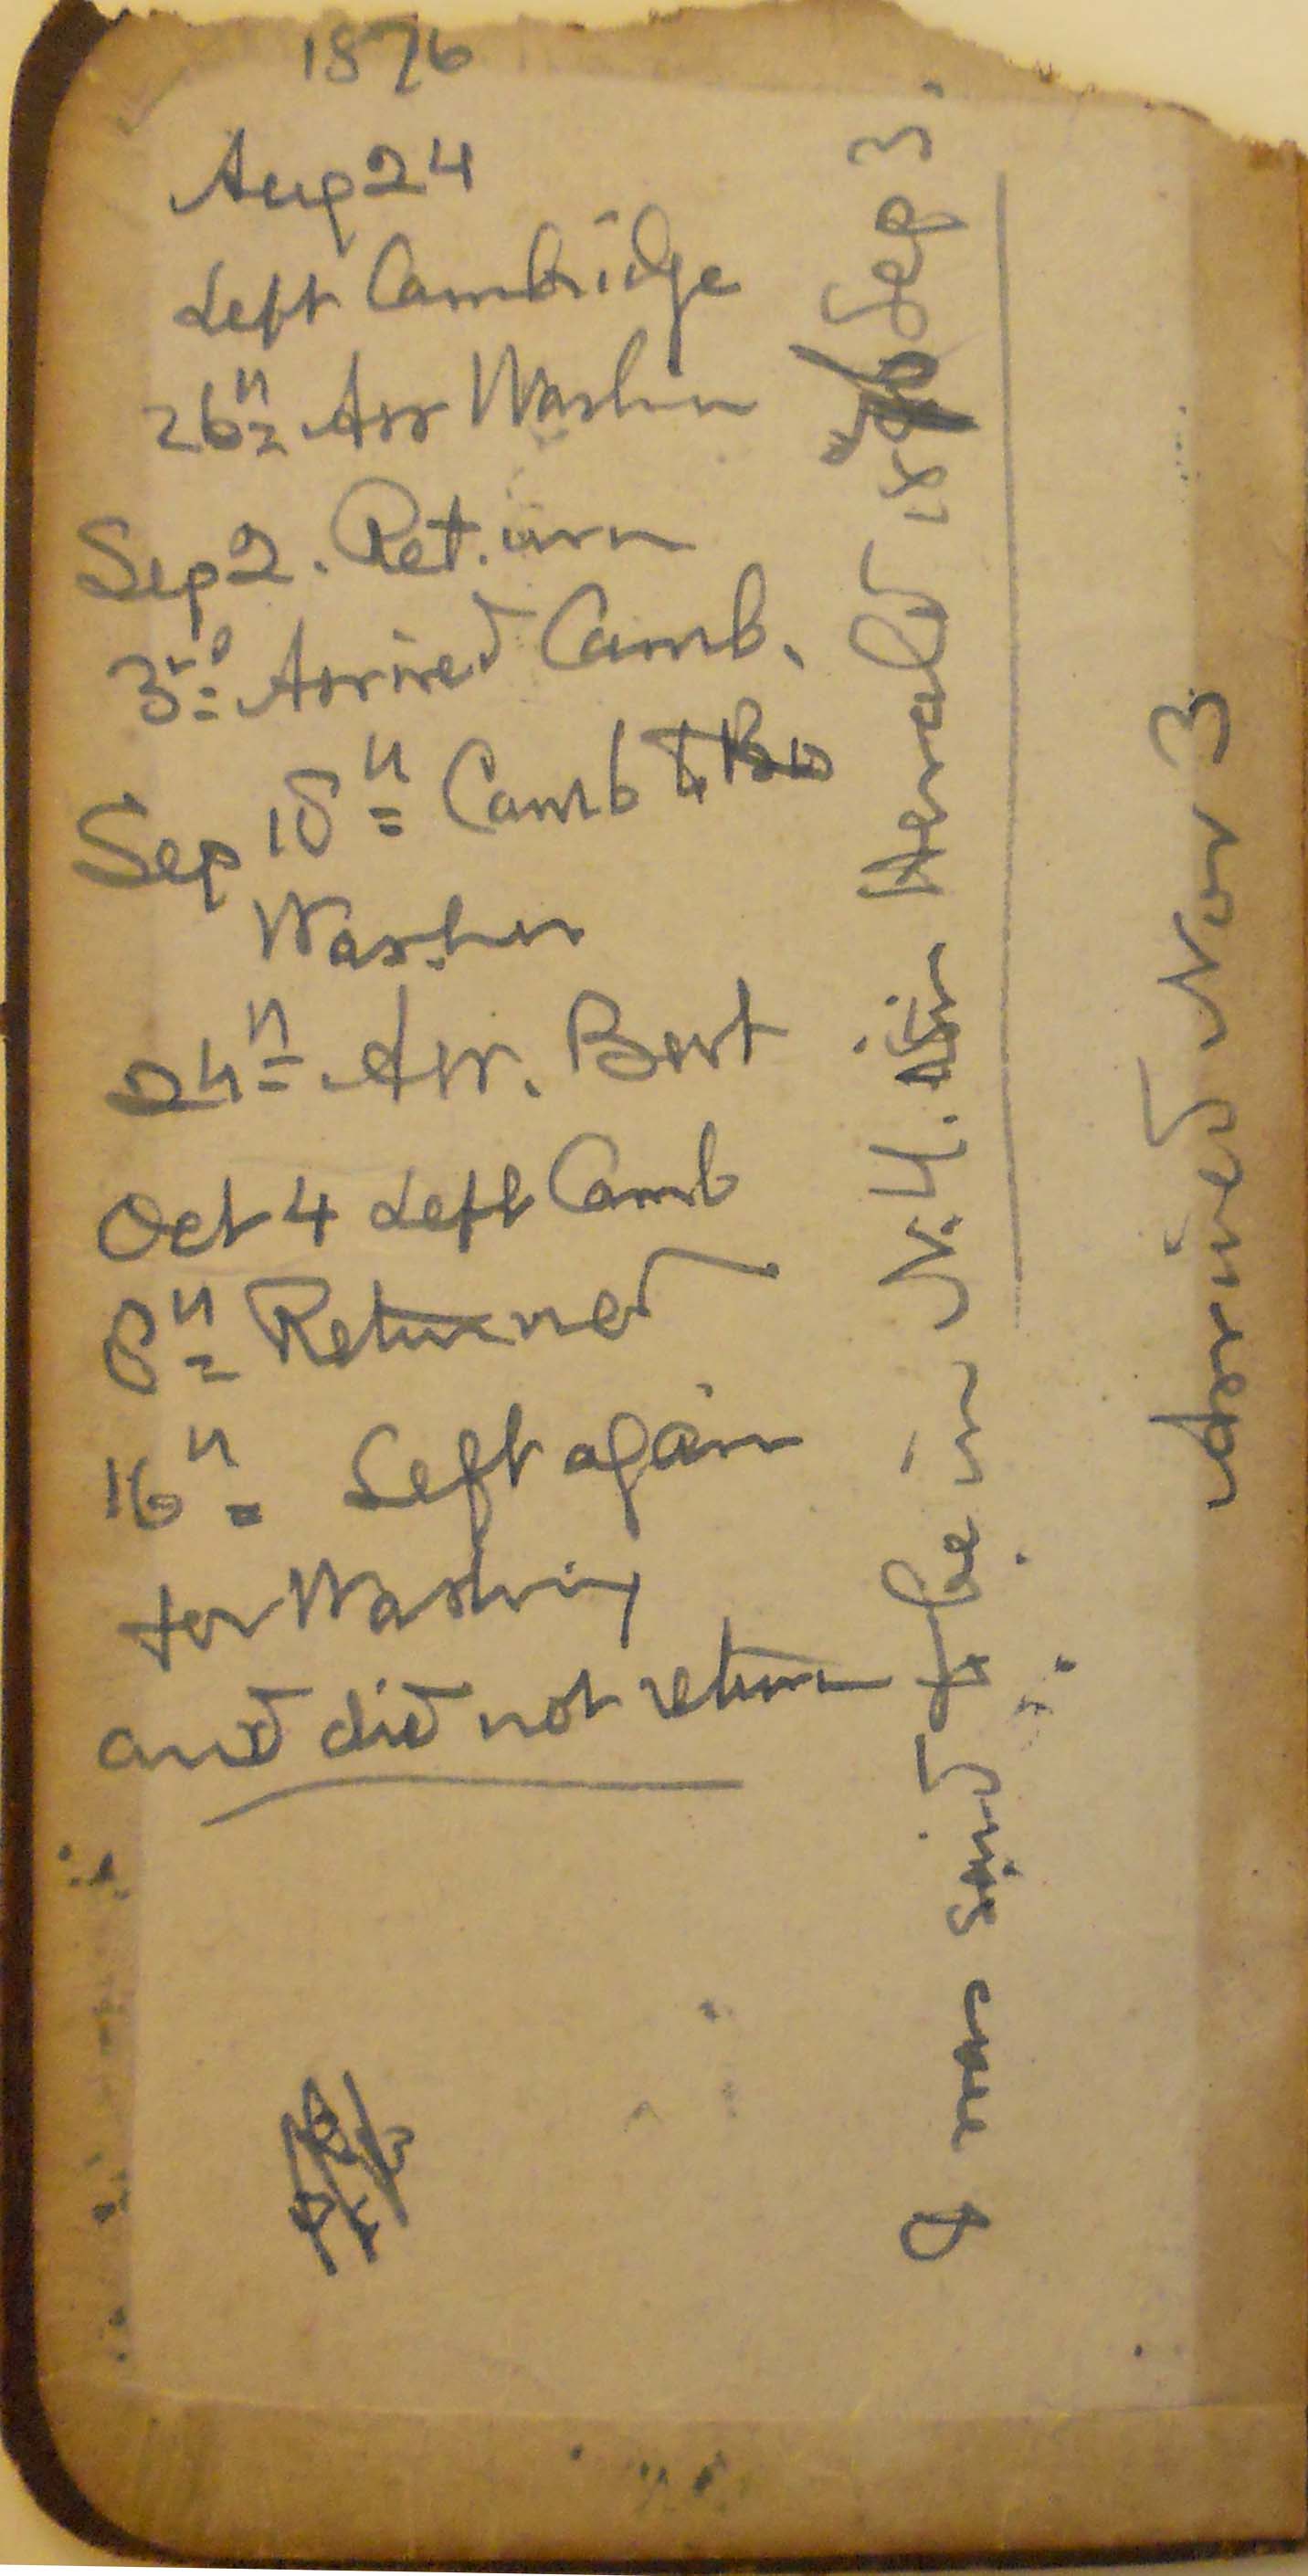 1876
Aug 24
Left Cambridge
26th Arr Washn
Sep 2. Return
3rd Arrived Camb.
Sep 18th Camb to
Washn
24th Arr. Bost
Oct 4 Left Camb
6th Returned
16th Left again
for Washing
and did not return
I was said to be in N.H. in Herald Sep 3.
arrived Nov 3